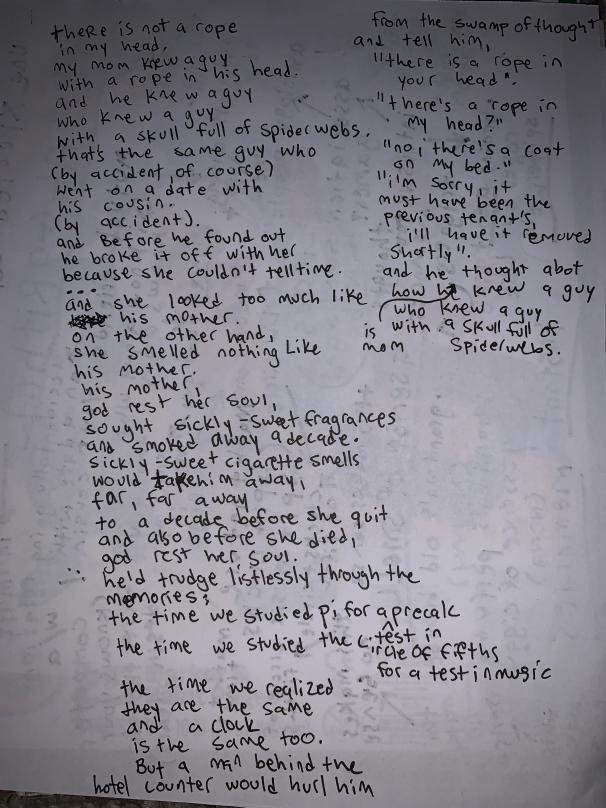 there is not a rope
in my head,
my mom knew a guy
with a rope in his head.
and he knew a guy
who knew a guy
with a skull full of spiderwebs.
that's the same guy who
(by accident, of course)
went on a date with
his cousin.
(by accident).
and before he found out
he broke it off with her
because she couldn't tell time.
...
and she looked too much like
his mother.
on the other hand,
she smelled nothing like
his mother.
his mother,
god rest her soul,
sought sickly-sweet fragrances
and smoked away a decade.
sickly-sweet cigarette smells
would take him away,
far, far away
to a decade before she quit
and also before she died,
god rest her soul.
he'd trudge listlessly through the
memories:
the time we studied pi for a precalc
test in
the time we studied the circle of fifths
for a test in music
the time we realized
they are the same
and a clock
is the same too.
But a man behind the
hotel counter would hurl him
from the swamp of thought
and tell him,
"there is a rope in
your head".
"there's a rope in
my head?"
"no, there's a coat
on my bed."
"i'm sorry, it
must have been the
previous tenant's,
i'll have it removed
shortly".
and he thought abot
how he knew a guy
who knew a guy
is with a skull full of
mom spiderwebs.